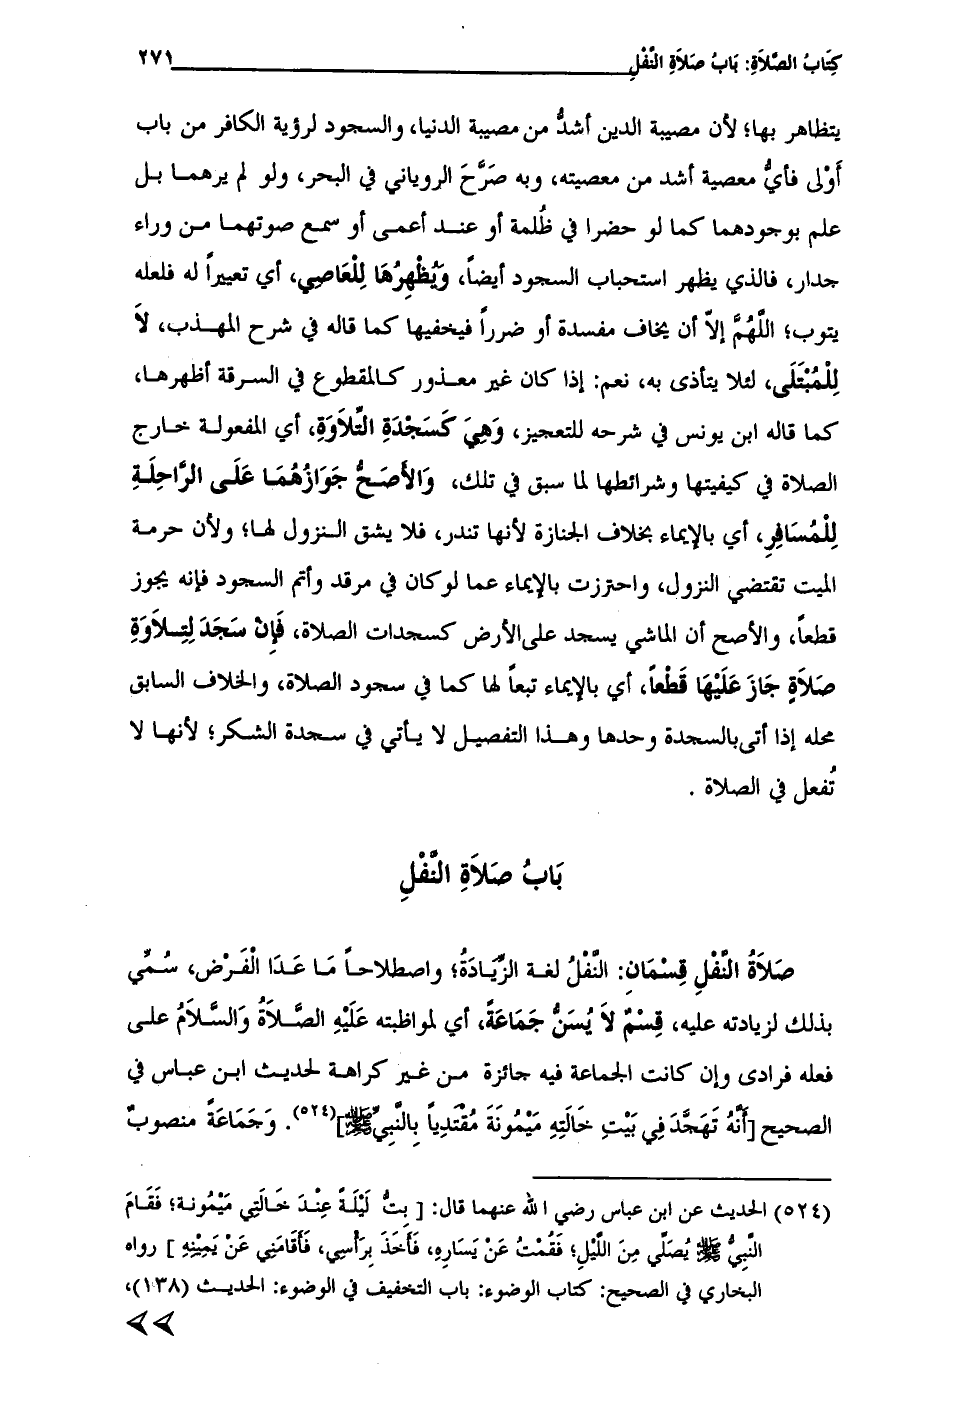 كِتَابُ الصَّلاَةِ: بَابُ صَلاَةِ النَّفْلِ ٢٧١
يتظاهر بها؛ لأن مصيبة الدين أشدُّ من مصيبة الدنيا، والسجود لرؤية الكافر من باب
أَوْلى فأيُّ معصية أشد من معصيته، وبه صَرَّحَ الروياني في البحر، ولو لم يرهما بل
علم بوجودهما كما لو حضرا في ظُلمة أو عند أعمى أو سمع صوتهما من وراء
جدار، فالذي يظهر استحباب السجود أيضاً، وَيُظْهِرُهَا لِلْعَاصِي، أي تعييراً له فلعله
يتوب؛ اللَّهُمَّ إلاّ أن يخاف مفسدة أو ضرراً فيخفيها كما قاله في شرح المهذب، لاَ
لِلْمُبْتَلَى، لئلا يتأذى به، نعم: إذا كان غير معذور كالمقطوع في السرقة أظهرها،
كما قاله ابن يونس في شرحه للتعجيز، وَهِيَ كَسَجْدَةِ التِّلاَوَةِ، أي المفعولة خارج
الصلاة في كيفيتها وشرائطها لما سبق في تلك، وَالأَصَحُّ جَوَازُهُمَا عَلَى الرَّاحِلَةِ
لِلْمُسَافِرِ، أي بالإيماء بخلاف الجنازة لأنها تندر، فلا يشق النزول لها؛ ولأن حرمة
الميت تقتضي النزول، واحترزت بالإيماء عما لو كان في مرقد وأتم السجود فإنه يجوز
قطعاً، والأصح أن الماشي يسجد على الأرض كسجدات الصلاة، فَإِنْ سَجَدَ لِتِلاَوَةِ
صَلاَةٍ جَازَ عَلَيْهَا قَطْعاً، أي بالإيماء تبعاً لها كما في سجود الصلاة، والخلاف السابق
محله إذا أتى بالسجدة وحدها وهذا التفصيل لا يأتي في سجدة الشكر؛ لأنها لا
تُفعل في الصلاة .
بَابُ صَلاَةِ النَّفْلِ
صَلاَةُ النَّفْلِ قِسْمَانِ: النَّفْلُ لغة الزِّيَادَةُ؛ واصطلاحاً مَا عَدَا الْفَرْض، سُمِّي
بذلك لزيادته عليه، قِسْمٌ لاَ يُسَنُّ جَمَاعَةً، أي لمواظبته عَلَيْهِ الصَّلاَةُ وَالسَّلاَمُ على
فعله فرادى وإن كانت الجماعة فيه جائزة من غير كراهة لحديث ابن عباس في
الصحيح [أَنَّهُ تَهَجَّدَ فِي بَيْتِ خَالَتِهِ مَيْمُونَةَ مُقْتَدِياً بِالنَّبِيِّ ﷺ](٥٢٤). وَجَمَاعَةً منصوبٌ
(٥٢٤) الحديث عن ابن عباس رضي الله عنهما قال: [ بِتُّ لَيْلَةً عِنْدَ خَالَتِي مَيْمُونة؛ فَقَامَ
النَّبِيُّ ﷺ يُصَلِّي مِنَ اللَّيْلِ؛ فَقُمْتُ عَنْ يَسَارِهِ، فَأَخَذَ بِرَأْسِي، فَأَقَامَنِي عَنْ يَمِيْنِهِ ] رواه
البخاري في الصحيح: كتاب الوضوء: باب التخفيف في الوضوء: الحديث (١٣٨)،